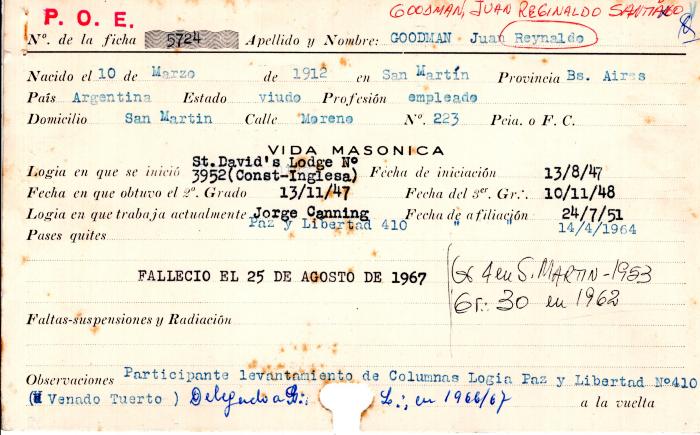 GOODMAN, JUAN REGINALDO SANTIAGO
P. O. E.
Nº. de la ficha 5724 Apellido y Nombre: GOODMAN Juan Reynaldo
Nacido el 10 de Marzo de 1912 en San Martín Provincia Bs. Aires
País Argentina Estado viudo Profesión empleado
Domicilio San Martin Calle Moreno Nº. 223 Pcia. o F. C.
VIDA MASONICA
St.David's Lodge Nº
Logia en que se inició 3952(Const-Inglesa) Fecha de iniciación 13/8/47
Fecha en que obtuvo el 2º. Grado 13/11/47 Fecha del 3er. Gr∴. 10/11/48
Logia en que trabaja actualmente Jorge Canning Fecha de afiliación 24/7/51
Paz y Libertad 410 " " 14/4/1964
Pases quites
FALLECIO EL 25 DE AGOSTO DE 1967
Gr 4 en S. MARTIN - 1953
Gr∴ 30 en 1962
Faltas-suspensiones y Radiación
Observaciones Participante levantamiento de Columnas Logia Paz y Libertad Nº410
( Venado Tuerto ) Delegado a G∴ L∴, en 1966/67 a la vuelta